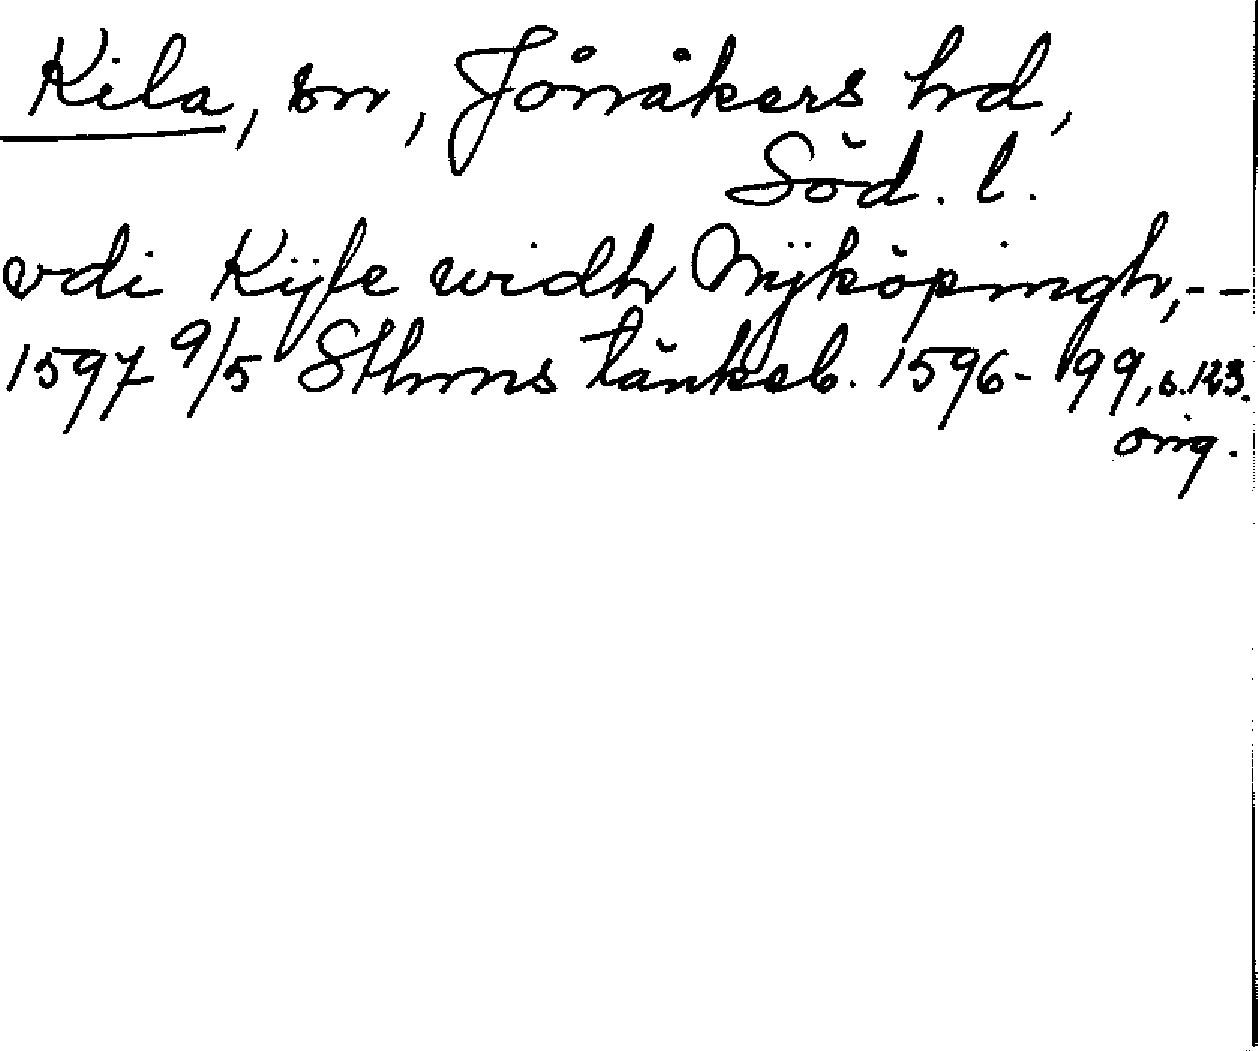 Kila, sn, Jönåkers hd,
Söd. l.
vdi Kÿle widh Nÿköpingh,--
1597 9/5 Sthms tänkeb. 1596-99, s. 123.
orig.